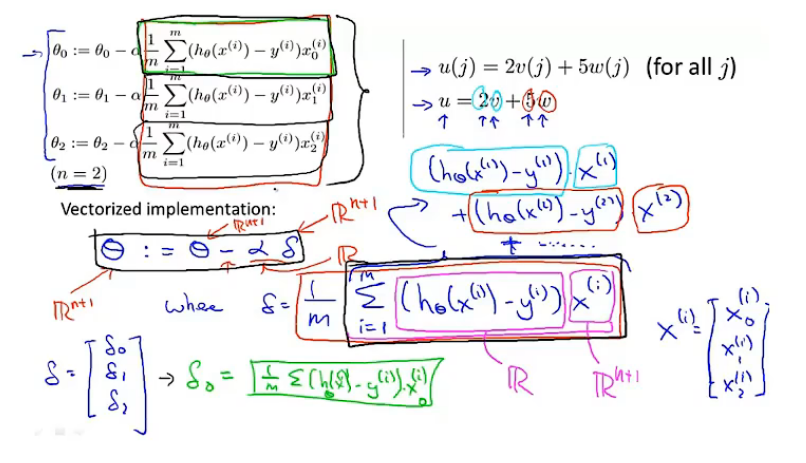 θ₀ := θ₀ − α (1/m) ∑_{i=1}^{m} (h_θ(x^(i)) − y^(i)) x₀^(i)
θ₁ := θ₁ − α (1/m) ∑_{i=1}^{m} (h_θ(x^(i)) − y^(i)) x₁^(i)
θ₂ := θ₂ − α (1/m) ∑_{i=1}^{m} (h_θ(x^(i)) − y^(i)) x₂^(i)
(n = 2)
→ u(j) = 2v(j) + 5w(j) (for all j)
→ u = 2v + 5w
(h_θ(x^(1)) − y^(1)) · x^(1)
+ (h_θ(x^(2)) − y^(2)) x^(2)
+ ........
Vectorized implementation:
ℝ^{n+1} ℝ^{n+1}
θ := θ − α δ
ℝ^{n+1} ℝ
where δ = (1/m) ∑_{i=1}^{m} (h_θ(x^(i)) − y^(i)) x^(i)
ℝ ℝ^{n+1}
x^(i) = [x₀^(i) x₁^(i) x₂^(i)]
δ = [δ₀ δ₁ δ₂] → δ₀ = (1/m) ∑ (h_θ(x^(i)) − y^(i)) · x₀^(i)